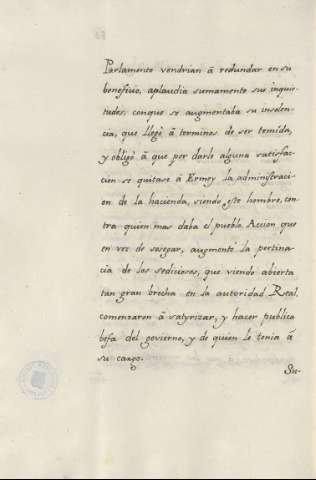 Parlamento vendrian á redundar en su
beneficio, aplaudia sumamente sus inquie-
tudes, conque se augmentaba su insolen-
cia, que llegó á terminos de ser temida,
y obligó á que por darle alguna satisfac-
cion se quitase á Ermey la administraci-
on de la hacienda, siendo este hombre, con-
tra quien mas daba el pueblo. Accion que
en vez de sosegar, augmentó la pertina-
cia de los sediciosos, que viendo abierta
tan gran brecha en la autoridad Real,
comenzaron á satyrizar, y hacer publica
bofa del govierno, y de quien le tenia á
su cargo.
Su-